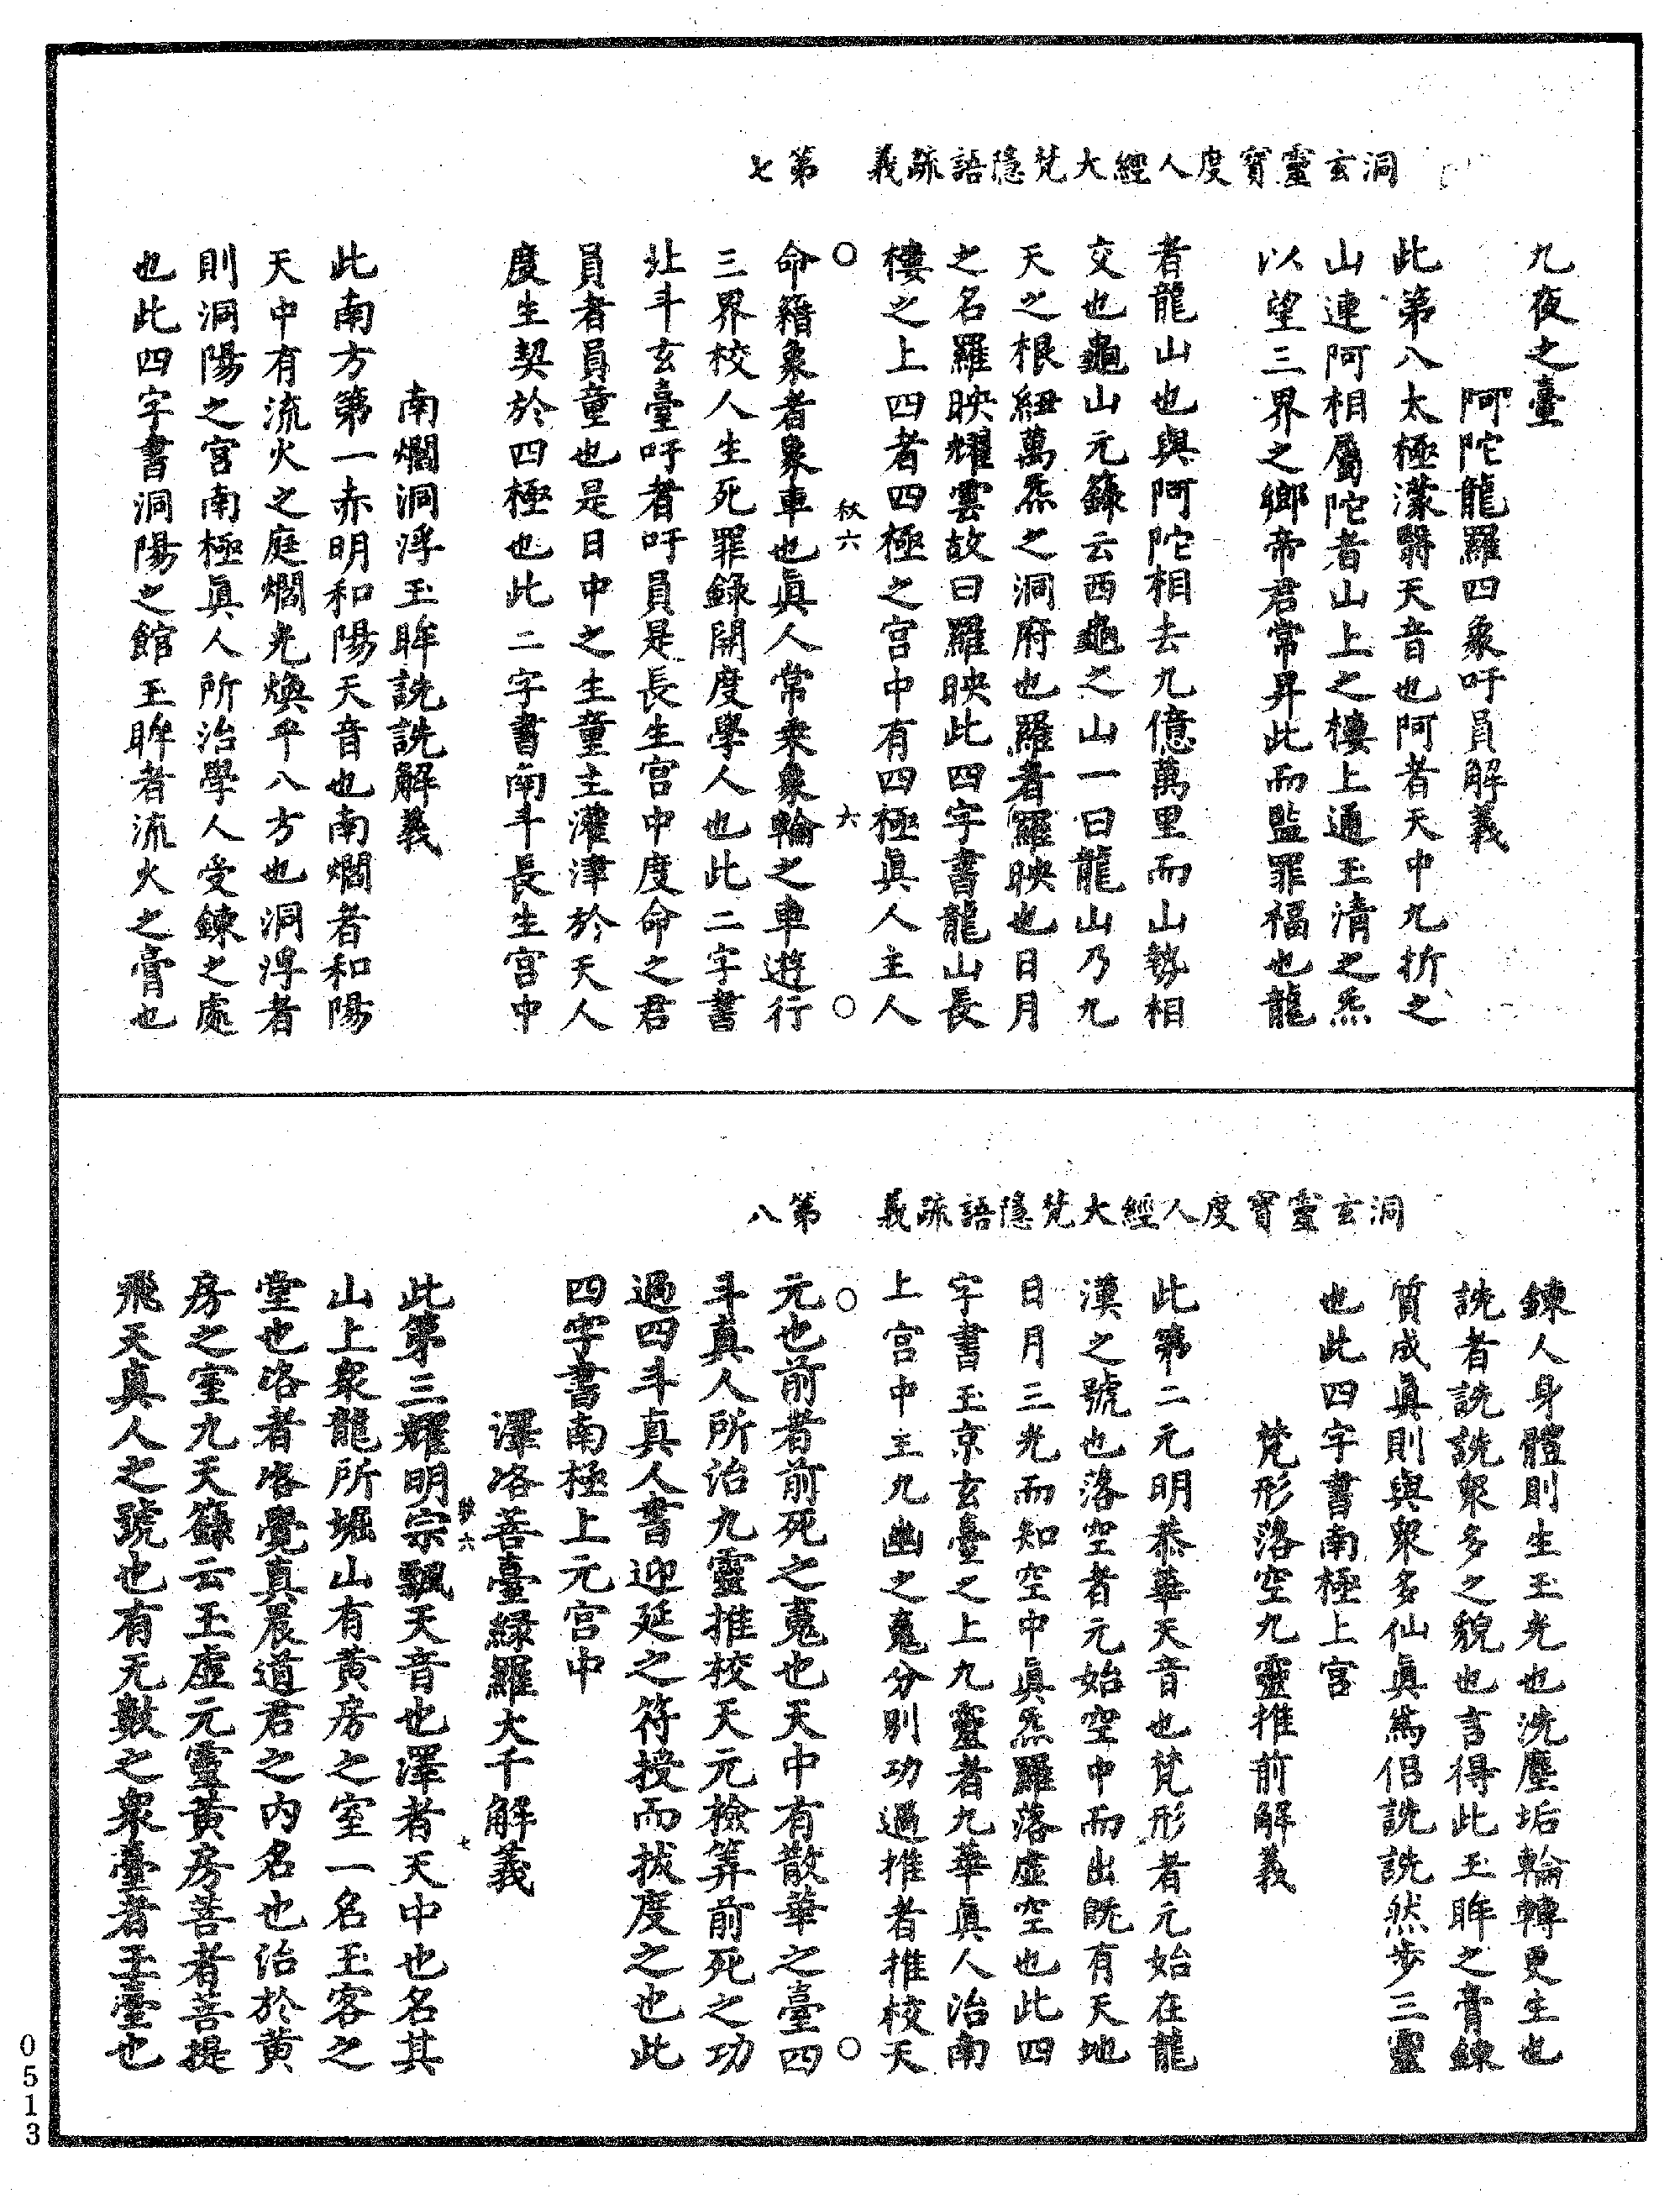 洞玄靈寳度人經大梵隱語疏義　第七
九夜之臺
阿陀龍羅四象吁員解義
此第八太極濛翳天音也阿者天中九折之
山連阿相屬陀者山上之樓上通玉清之炁
以望三界之鄉帝君常昇此而監罪福也龍
者龍山也與阿陀相去九億萬里而山勢相
交也龜山元籙云西龜之山一曰龍山乃九
天之根紐萬炁之洞府也羅者羅映也日月
之名羅映耀雲故曰羅映此四字書龍山長
樓之上四者四極之宫中有四極眞人主人
○　秋六　六　○
命籍象者象車也眞人常乘象輪之車遊行
三界校人生死罪錄開度學人也此二字書
北斗玄臺吁者吁員是長生宫中度命之君
員者員童也是日中之生童主灌津於天人
度生契於四極也此二字書南斗長生宫中
南爓洞浮玉眸詵詵解義
此南方第一赤明和陽天音也南爓者和陽
天中有流火之庭爓光煥乎八方也洞浮者
則洞陽之宫南極眞人所治學人受鍊之處
也此四字書洞陽之館玉眸者流火之膏也
洞玄靈寳度人經大梵隱語疏義　第八
鍊人身體則生玉光也洗塵垢輪轉更生也
詵者詵詵衆多之貌也言得此玉眸之膏鍊
質成眞則與衆多仙眞爲侣詵詵然步三靈
也此四字書南極上宫
梵形落空九靈推前解義
此第二元明恭華天音也梵形者元始在龍
漢之號也落空者元始空中而出旣有天地
日月三光而知空中眞炁羅落虛空也此四
字書玉京玄臺之上九靈者九華眞人治南
上宫中主九幽之䰟分別功過推者推校天
○　○
元也前者前死之䰟也天中有散華之臺四
斗真人所治九靈推校天元檢筭前死之功
過四斗真人書迎延之符授而拔度之也此
四字書南極上元宫中
澤洛菩臺緑羅大千解義
此第三耀明宗飄天音也澤者天中也名其
秋六　七
山上衆龍所堀山有黄房之室一名玉客之
堂也洛者洛覺真晨道君之内名也治於黄
房之室九天籙云玉虛元靈黄房菩者菩提
飛天真人之號也有无數之衆臺者玉臺也
0513